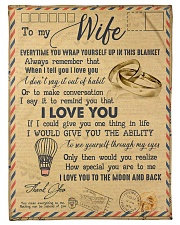 To my Wife
EVERYTIME YOU WRAP YOURSELF UP IN THIS BLANKET
Always remember that
When I tell you I love you
I don't say it out of habit
Or to make conversation
I say it to remind you that
I LOVE YOU
If I could give you one thing in life
I WOULD GIVE YOU THE ABILITY
to see yourself through my eyes
Only then would you realize
How special you are to me
I LOVE YOU TO THE MOON AND BACK